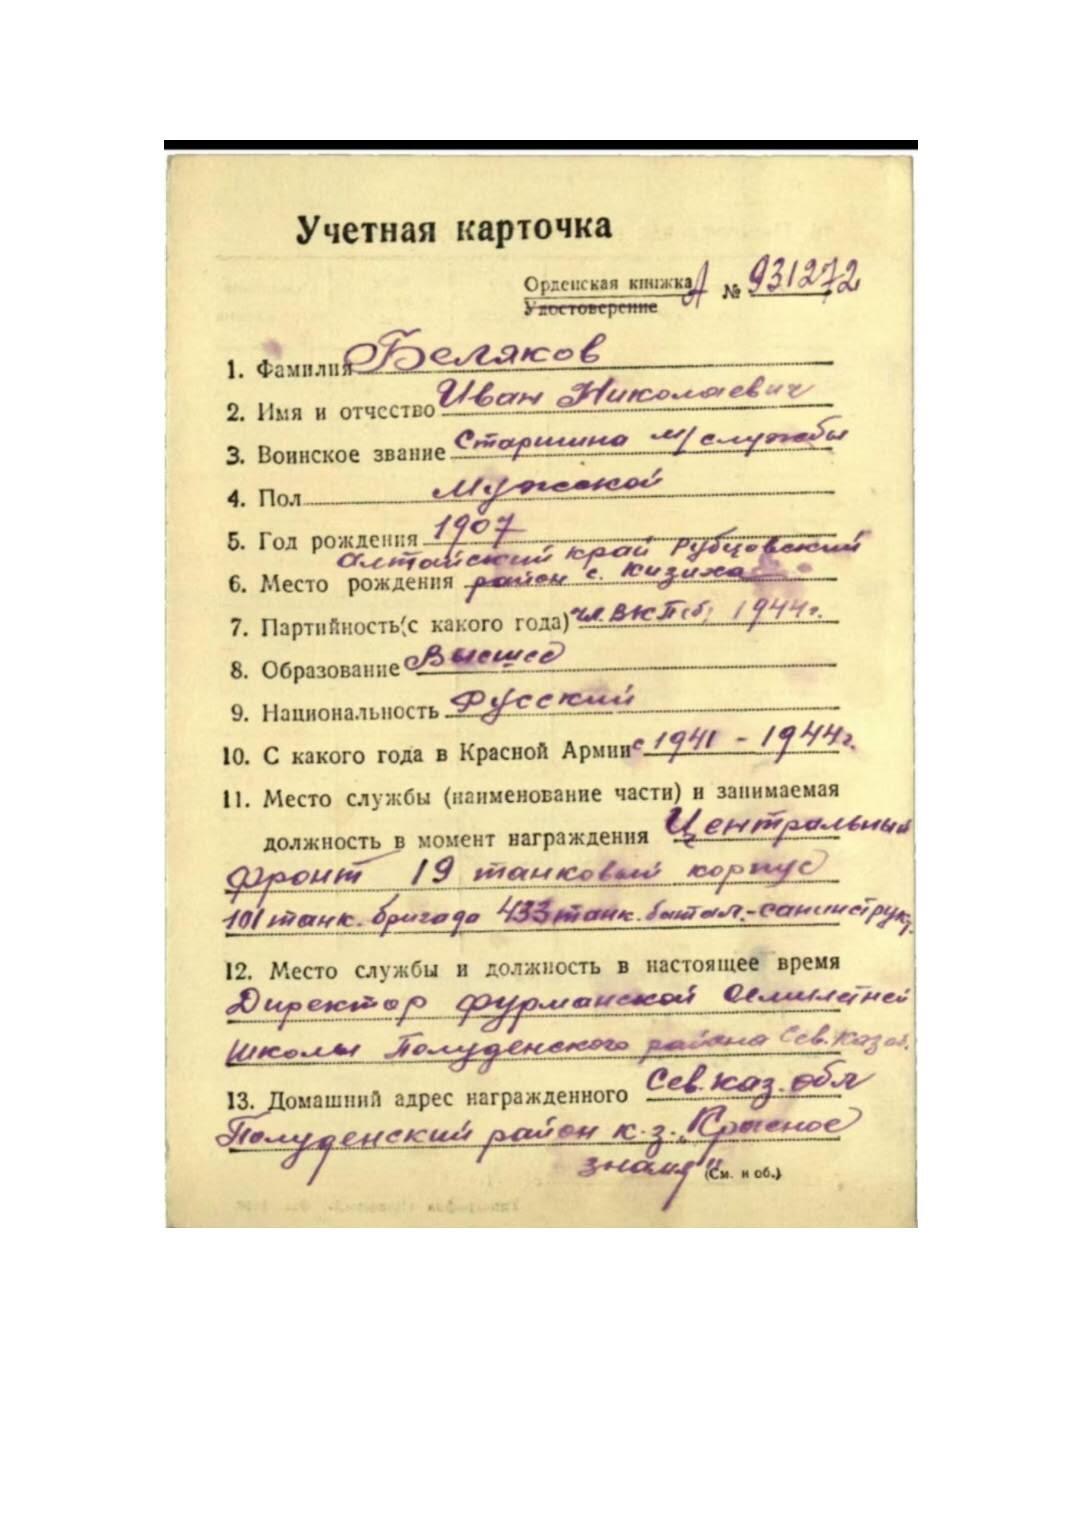 Учетная карточка
Орденская книжка А № 931272
Удостоверение
1. Фамилия Беляков
2. Имя и отчество Иван Николаевич
3. Воинское звание Старшина м/службы
4. Пол Мужской
5. Год рождения 1907
Алтайский край Рубцовский
6. Место рождения район с. Кизиха
7. Партийность (с какого года) чл. ВКП(б) 1944г.
8. Образование Высшее
9. Национальность Русский
10. С какого года в Красной Армии с 1941 - 1944г.
11. Место службы (наименование части) и занимаемая
должность в момент награждения Центральный
фронт 19 танковый корпус
101 танк. бригада 433 танк. батал.-санинструк.
12. Место службы и должность в настоящее время
Директор Фурманской Семилетней
Школы Полуденского района Сев. Каз об.
13. Домашний адрес награжденного Сев. каз. обл
Полуденский район к-з. „Красное
знамя"
(См. н об.)